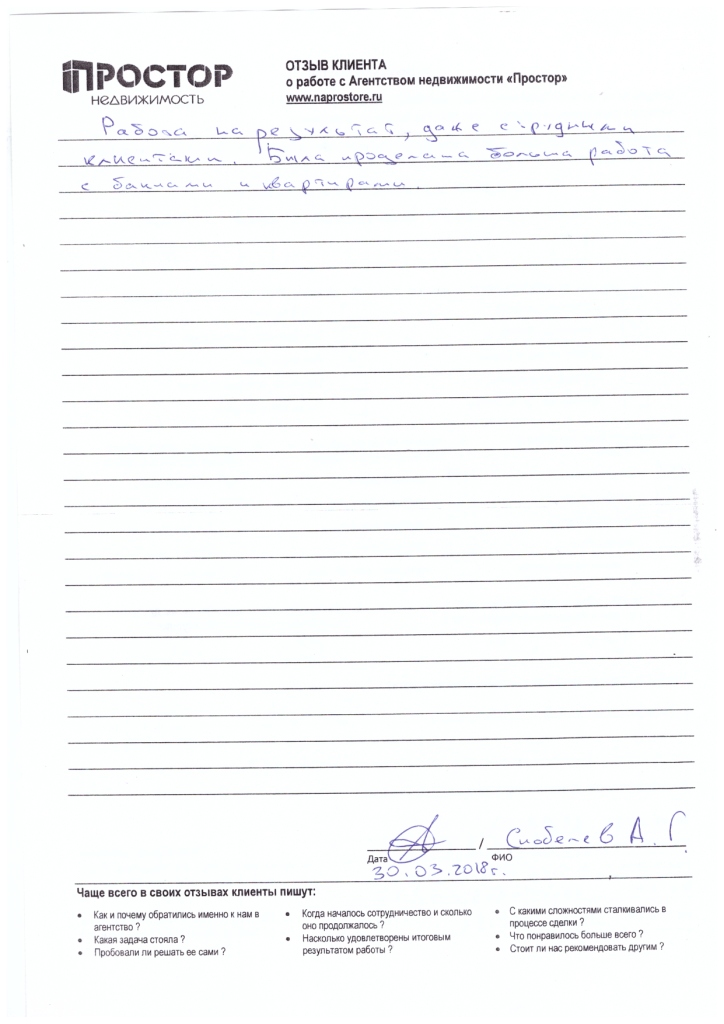 ПРОСТОР
НЕДВИЖИМОСТЬ
ОТЗЫВ КЛИЕНТА
о работе с Агентством недвижимости «Простор»
www.naprostore.ru
Работа на результат, даже с трудными
клиентами. Была проделана больша работа
с банками и квартирами.
/ А. Г
Дата
ФИО
30.03.2018г.
Чаще всего в своих отзывах клиенты пишут:
• Как и почему обратились именно к нам в
агентство ?
• Какая задача стояла ?
• Пробовали ли решать ее сами ?
• Когда началось сотрудничество и сколько
оно продолжалось ?
• Насколько удовлетворены итоговым
результатом работы ?
• С какими сложностями сталкивались в
процессе сделки ?
• Что понравилось больше всего ?
• Стоит ли нас рекомендовать другим ?